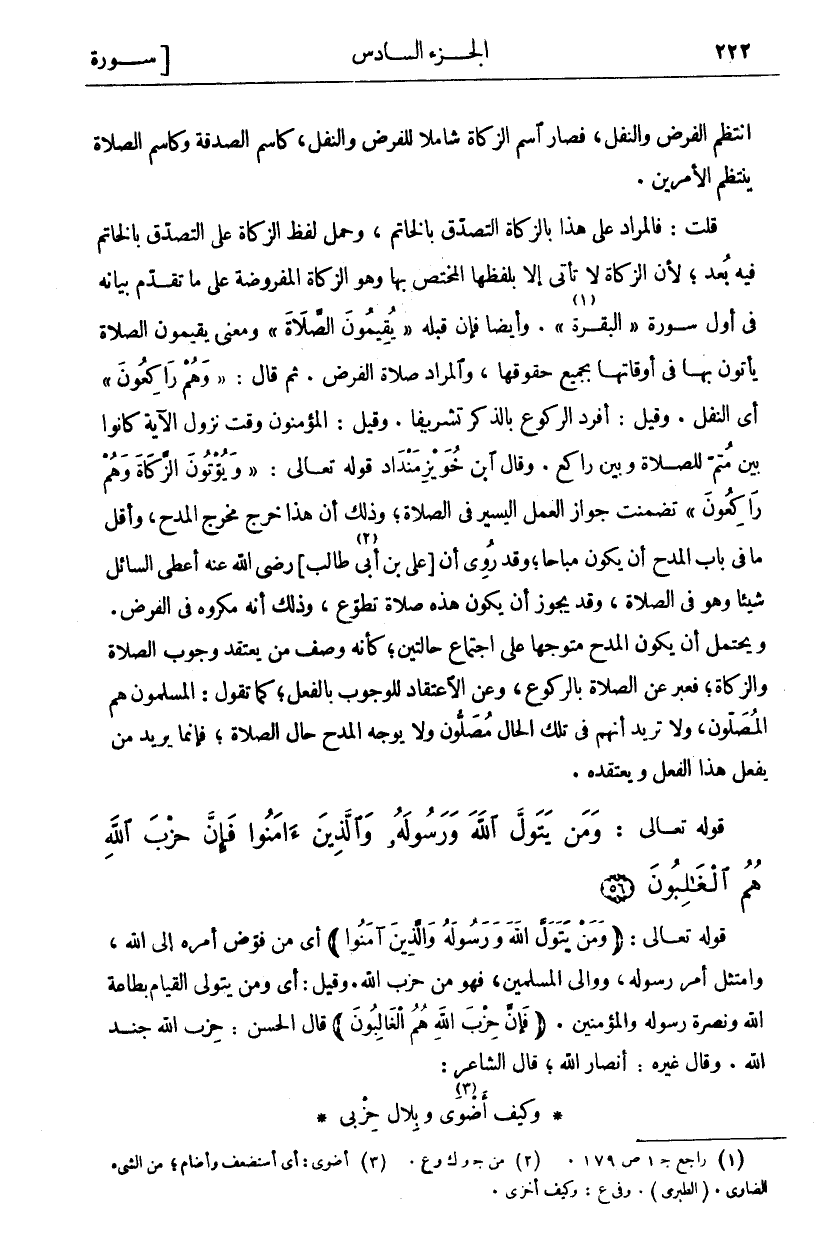 ٢٢٢ الجزء السادس [ سورة
انتظم الفرض والنفل، فصار ٱسم الزكاة شاملا للفرض والنفل، كاسم الصدقة وكاسم الصلاة
ينتظم الأمرين .
قلت : فالمراد على هذا بالزكاة التصدّق بالخاتم ، وحمل لفظ الزكاة على التصدّق بالخاتم
فيه بُعد ؛ لأن الزكاة لا تأتى إلا بلفظها المختص بها وهو الزكاة المفروضة على ما تقدّم بيانه
فى أول سورة « البقرة(١) » . وأيضا فإن قبله « يُقِيمُونَ الصَّلَاةَ » ومعنى يقيمون الصلاة
يأتون بها فى أوقاتها بجميع حقوقها ، وٱلمراد صلاة الفرض . ثم قال : « وَهُمْ رَاكِعُونَ »
أى النفل . وقيل : أفرد الركوع بالذكر تشريفا . وقيل : المؤمنون وقت نزول الآية كانوا
بين مُتمّ للصلاة وبين راكع . وقال ٱبن خُوَيْزِمَنْدَاد قوله تعالى : « وَيُؤْتُونَ الزَّكَاةَ وَهُمْ
رَاكِعُونَ » تضمنت جواز العمل اليسير فى الصلاة؛ وذلك أن هذا خرج مخرج المدح، وأقل
ما فى باب المدح أن يكون مباحا؛ وقد رُوِى أن [على بن أبى طالب(٢)] رضى الله عنه أعطى السائل
شيئا وهو فى الصلاة ، وقد يجوز أن يكون هذه صلاة تطوّع ، وذلك أنه مكروه فى الفرض.
ويحتمل أن يكون المدح متوجها على اجتماع حالتين؛ كأنه وصف من يعتقد وجوب الصلاة
والزكاة؛ فعبر عن الصلاة بالركوع ، وعن الٱعتقاد للوجوب بالفعل؛ كما تقول : المسلمون هم
المُصَلّون، ولا تريد أنهم فى تلك الحال مُصَلُّون ولا يوجه المدح حال الصلاة ؛ فإنما يريد من
يفعل هذا الفعل ويعتقده .
قوله تعالى : وَمَن يَتَوَلَّ ٱللَّهَ وَرَسُولَهُۥ وَٱلَّذِينَ ءَامَنُوا فَإِنَّ حِزْبَ ٱللَّهِ
هُمُ ٱلْغَـٰلِبُونَ ٥٦
قوله تعالى : ﴿ وَمَنْ يَتَوَلَّ اللهَ وَرَسُولَهُ وَالَّذِينَ آمَنُوا ﴾ أى من فوّض أمره إلى الله ،
وامتثل أمر رسوله ، ووالى المسلمين، فهو من حزب الله. وقيل: أى ومن يتولى القيام بطاعة
الله ونصرة رسوله والمؤمنين . ﴿ فَإِنَّ حِزْبَ اللهِ هُمُ الْغَالِبُونَ ﴾ قال الحسن : حِزب الله جند
الله . وقال غيره : أنصار الله ؛ قال الشاعر :
* وكيف أَضْوَى(٣) وبِلال حِزْبى *
(١) راجع ج ١ ص ١٧٩ . (٢) من ج و ك و ع . (٣) أضوى : أى أستضعف وأضام ؛ من الشىء
الضاوى . (الطبرى) . وفى ع : وكيف أخزى .